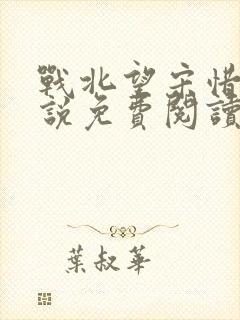 戰北望宋惜
說免費閱讀
葉叔華